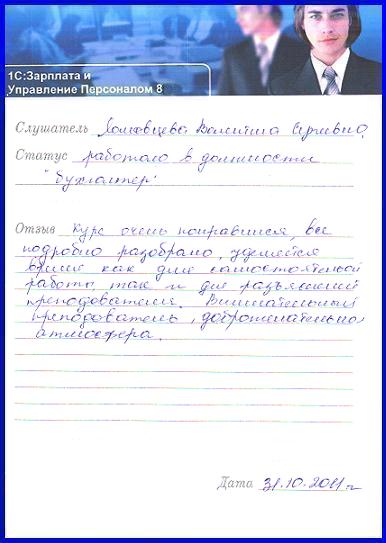 1С:Зарплата и
Управление Персоналом 8
Слушатель Валентина Сергеевна
Статус работаю в должности
"бухгалтер"
Отзыв Курс очень понравился, все
подробно разобрано, уделяется
время как для самостоятельной
работы, так и для разъяснений
преподавателя. Внимательный
преподаватель, доброжелательная
атмосфера.
Дата 31.10.2011 г